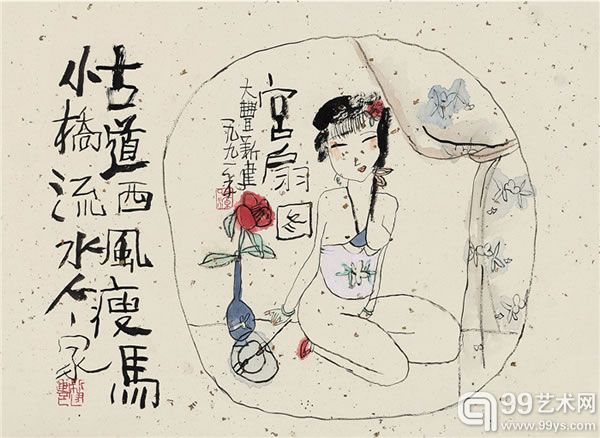 宮扇图
大豐新建
一九九一年
古道西風瘦馬
小橋流水人家
99艺术网
www.99ys.com